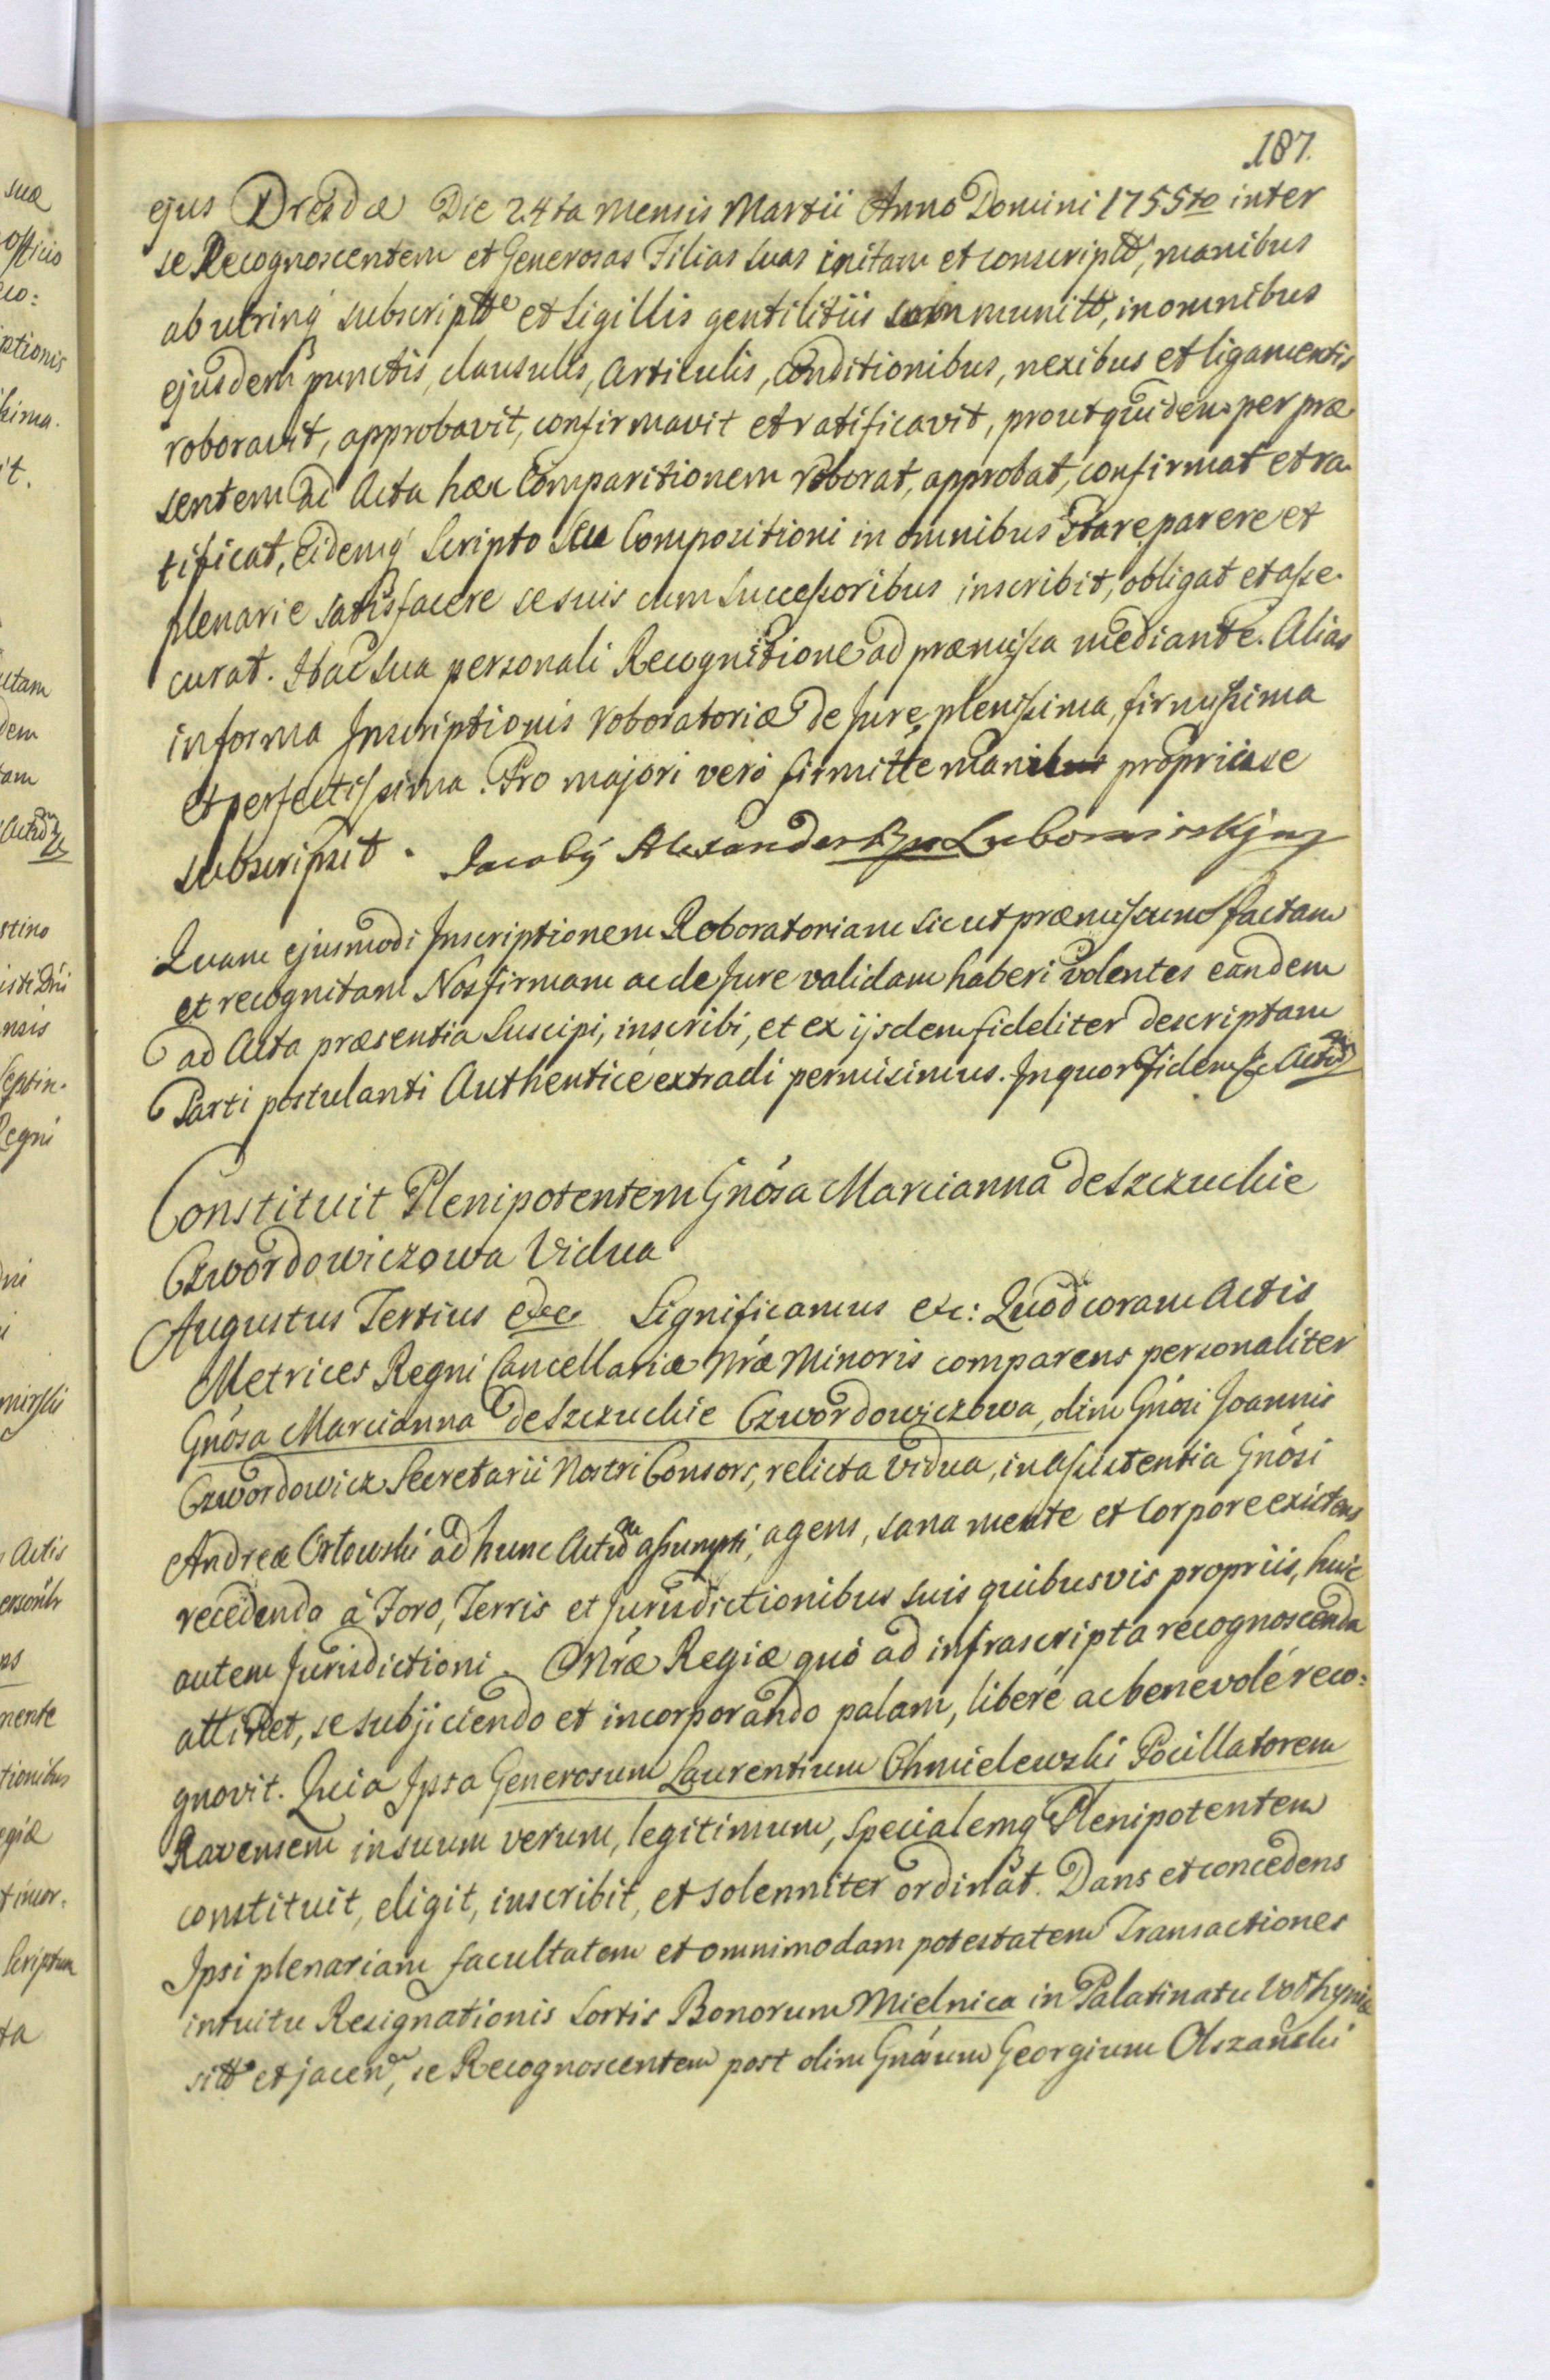 187.
ejus Dresdæ Die 24ta mensis Martii Anno Domini 1755to inter
se Recognoscentem et Generosas Filias suas initam et conscriptt, manibus
ab utrinq́ subscriptte et Sigillis gentilitiis communitt, in omnibus
ejusdem punctis, clausulis, Articulis, Conditionibus, nexibus et ligamentis
roboravit, approbavit, confirmavit et ratificavit, prout quidem per præ
sentem ad Acta hæc Comparitionem roborat, approbat, confirmat et ra
tificat, Eidemq́ Scripto seu Compositioni in omnibus stare, parere et
plenarie satisfacere se suis cum Successoribus inscribit, obligat et asse
curat. Hac sua personali Recognitione ad præmissa mediante. Alias
in forma Inscriptionis roboratoriæ de Jure, plenissima, firmissima
et perfectissima. Pro majori verò firmitte propria se
subscripsit. Jacobÿ Alexander Lubomirski
Quam ejusmodi Inscriptionem Roboratoriam sicut præmissum factam
et recognitam Nos firmam ac de Jure validam haberi volentes eandem
ad Acta præsentia suscipi, inscribi, et ex ijsdem fideliter descriptam
Parti postulanti Authenticè extradi permisimus. In quor Fidem &c Actũ
Constituit Plenipotentem Gnósa Marcianna de Szczuckie
Czwordowiczowa Vidua
Augustus Tertius etcc Significamus etc: Quod coram Actis
Metrices Regni Cancellariæ Nræ Minoris comparens personaliter
Gnósa Marcianna de Szczuckie Czwordowiczowa, olim Gnósi Joannis
Czwordowicz Secretarii Nostri Consors, relicta vidua, in assistentia Gnósi
Andreæ Orłowski ad hunc Actũ assumpti, agens, sana mente et Corpore existens
recedendo à Foro, Terris et Jurisdictionibus suis quibusvis propriis, huic
autem Jurisdictioni Nræ Regiæ quó ad infrascripta recognoscenda
attinet, se subjiciendo et incorporando palam, liberé ac benevolé reco:
gnovit. Quia Ipsa Generosum Laurentium Chmielewski Pocillatorem
Ravensem in suum verum, legitimum, specialemq́ Plenipotentem
constituit, eligit, inscribit, et solenniter ordinat. Dans et concedens
Ipsi plenariam facultatem et omnimodam potestatem Transactiones
intuitu Resignationis Sortis Bonorum Mielnica in Palatinatu Volhyniæ
sitt et jacen, se Recognoscentem post olim Gnósum Georgium Olszański